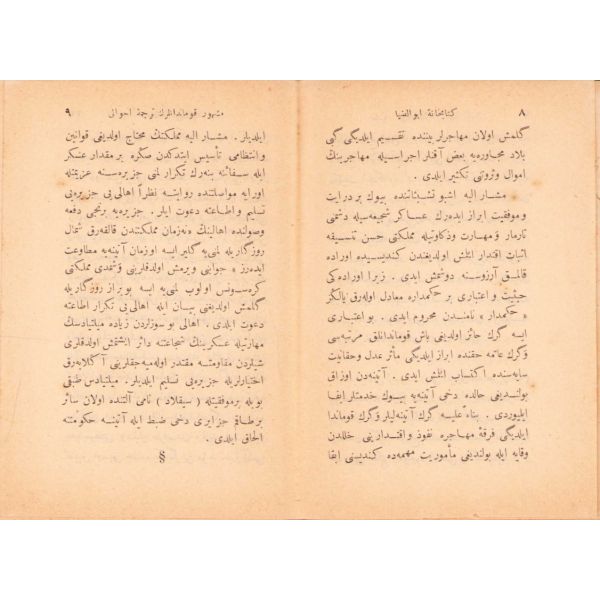 ٨ كتابخانهٔ ابوالضيا
كلمش اولان مهاجرلر بيننده تقسيم ايلديكى كبى
بلاد مجاوره‌يه بعض آقنلر اجراسيله مهاجرينك
اموال وثروتنى تكثير ايلدى .
مشار اليه اشبو تشبثاتنده بيوك بر درايت
وموفقيت ابراز ايده‌رك عساكر شجيعه‌سيله دشمنى
تارمار ومهارت وذكاوتيله مملكتى حسن تنسيقه
اثبات اقتدار ايلمش اولديغندن كنديسيده اوراده
قالمق آرزوسنه دوشمش ايدى . زيرا اوراده‌كى
حيثيت واعتبارى بر حكمداره معادل اوله‌رق يالكز
« حكمدار » نامندن محروم ايدى . بو اعتبارى
ايسه كرك حائز اولديغى باش قوماندانلق مرتبه‌سى
وكرك عامه حقنده ابراز ايلديكى مآثر عدل وحقانيت
سايه‌سنده اكتساب ايلمش ايدى . آتينه‌دن اوزاق
بولنديغى حالده دخى آتينه‌يه بيوك خدمتلر ايفا
ايليوردى . بناءً عليه كرك آتينه‌ليلر وكرك قوماندا
ايلديكى فرقهٔ مهاجره نفوذ واقتدارينى خللدن
وقايه ايله بولنديغى مأموريت مهمه‌ده كنديسنى ابقا
مشهور قوماندانلرك ترجمهٔ احوالى ٩
ايلديلر . مشار اليه مملكتك محتاج اولديغى قوانين
وانتظامى تأسيس ايتدكدن صكره بر مقدار عسكر
ايله سفائنه بنه‌رك تكرار لمنى جزيره‌سنه عزيمتله
اورايه مواصلتنده روايتـه نظراً اهالى‌يى جزيره‌يى
تسليم واطاعته دعوت ايلر . جزيره‌يه برنجى دفعه
وصولنده اهالينك « نه‌زمان مملكتندن قالقه‌رق شمال
روزكاريله لمنى‌يه كلير ايسه اوزمان آتينه‌يه مطاوعت
ايده‌رز » جوابنى ويرمش اولدقلرينى وشمدى مملكتى
كرسونس اولوب لمنى‌يه ايسه بويراز روزكاريله
كلمش اولديغنى بيان ايله اهالى‌يى تكرار اطاعته
دعوت ايلدى . اهالى بو سوزلردن زياده ميلتيادسك
مهارتيله عسكرينك شجاعتنه دائر ايشتمش اولدقلرى
شيلردن مقاومته مقتدر اوله‌ميه‌جقلرينى آكلايه‌رق
اختيارلريله جزيره‌يى تسليم ايلديلر . ميلتيادس طبقى
بويله بر موفقيتله ( سيقلاد ) نامى آلتنده اولان سائر
بر طاقم جزايرى دخى ضبط ايله آتينه حكومتنه
الحاق ايلدى .
§